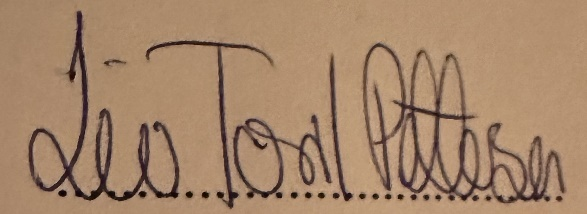 Liv Toril Pettersen